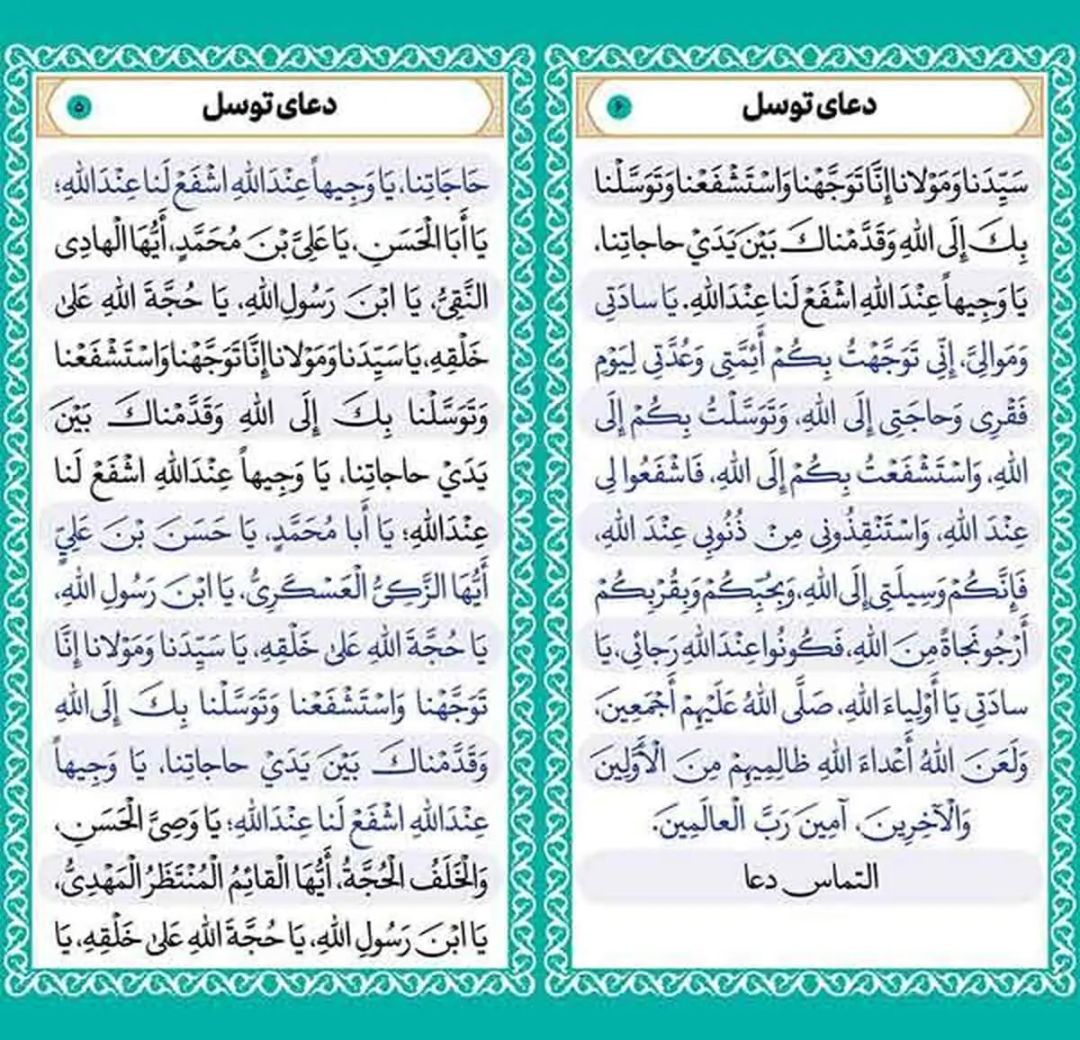 دعای توسل
۵
حَاجَاتِنا، یَا وَجِیهاً عِنْدَاللهِ اشْفَعْ لَنا عِنْدَاللهِ؛
یَا أَبَا الْحَسَنِ، یَا عَلِیَّ بْنَ مُحَمَّدٍ، أَیُّهَا الْهادِی
النَّقِیُّ، یَا ابْنَ رَسُولِ اللهِ، یَا حُجَّةَ اللهِ عَلیٰ
خَلْقِهِ، یَا سَیِّدَنا وَمَوْلانا إِنَّا تَوَجَّهْنا وَاسْتَشْفَعْنا
وَتَوَسَّلْنا بِكَ إِلَی اللهِ وَقَدَّمْناكَ بَیْنَ
یَدَیْ حاجاتِنا، یَا وَجِیهاً عِنْدَاللهِ اشْفَعْ لَنا
عِنْدَاللهِ؛ یَا أَبا مُحَمَّدٍ، یَا حَسَنَ بْنَ عَلِیٍّ
أَیُّهَا الزَّکِیُّ الْعَسْکَرِیُّ، یَا ابْنَ رَسُولِ اللهِ،
یَا حُجَّةَ اللهِ عَلیٰ خَلْقِهِ، یَا سَیِّدَنا وَمَوْلانا إِنَّا
تَوَجَّهْنا وَاسْتَشْفَعْنا وَتَوَسَّلْنا بِكَ إِلَی اللهِ
وَقَدَّمْناكَ بَیْنَ یَدَیْ حاجاتِنا، یَا وَجِیهاً
عِنْدَاللهِ اشْفَعْ لَنا عِنْدَاللهِ؛ یَا وَصِیَّ الْحَسَنِ،
وَالْخَلَفُ الْحُجَّةُ، أَیُّهَا الْقائِمُ الْمُنْتَظَرُ الْمَهْدِیُّ،
یَا ابْنَ رَسُولِ اللهِ، یَا حُجَّةَ اللهِ عَلیٰ خَلْقِهِ، یَا
دعای توسل
۶
سَیِّدَنا وَمَوْلانا إِنَّا تَوَجَّهْنا وَاسْتَشْفَعْنا وَتَوَسَّلْنا
بِكَ إِلَی اللهِ وَقَدَّمْناكَ بَیْنَ یَدَیْ حاجاتِنا،
یَا وَجِیهاً عِنْدَ اللهِ اشْفَعْ لَنا عِنْدَاللهِ. یَا سادَتِی
وَمَوالِیَّ، إِنِّی تَوَجَّهْتُ بِکُمْ أَئِمَّتِی وَعُدَّتِی لِیَوْمِ
فَقْرِی وَحاجَتِی إِلَی اللهِ، وَتَوَسَّلْتُ بِکُمْ إِلَی
اللهِ، وَاسْتَشْفَعْتُ بِکُمْ إِلَی اللهِ، فَاشْفَعُوا لِی
عِنْدَ اللهِ، وَاسْتَنْقِذُونِی مِنْ ذُنُوبِی عِنْدَ اللهِ،
فَإِنَّکُمْ وَسِیلَتِی إِلَی اللهِ، وَبِحُبِّکُمْ وَبِقُرْبِکُمْ
أَرْجُو نَجاةً مِنَ اللهِ، فَکُونُوا عِنْدَ اللهِ رَجائِی، یَا
سادَتِی یَا أَوْلِیاءَ اللهِ، صَلَّی اللهُ عَلَیْهِمْ أَجْمَعِینَ،
وَلَعَنَ اللهُ أَعْداءَ اللهِ ظالِمِیهِمْ مِنَ الْأَوَّلِینَ
وَالْآخِرِینَ، آمِینَ رَبَّ الْعالَمِینَ.
التماس دعا